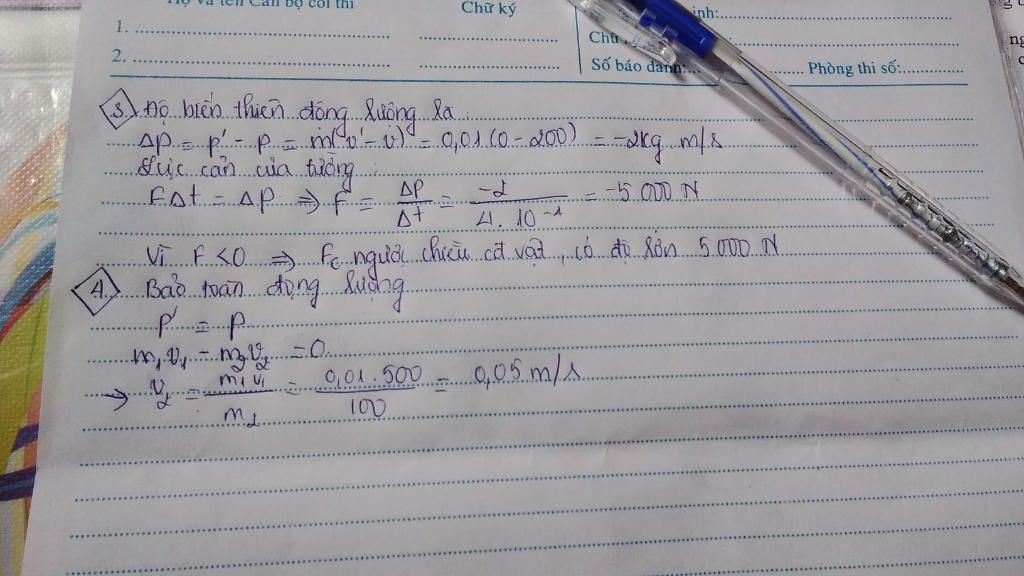 Họ và tên Cán bộ coi thi
Chữ ký
1.
2.
inh:
Chữ
Số báo danh:
Phòng thi số:
3. Độ biến thiên động lượng là
Δp = p' - p = m(v' - v) = 0,01(0 - 200) = -2kg m/s
Lực cản của tường
FΔt = Δp => F = Δp/Δt = -2/4.10⁻⁴ = -5000 N
Vì F < 0 => Fc ngược chiều cđ vật, có độ lớn 5000 N
4. Bảo toàn động lượng
p' = p
m₁v₁ - m₂v₂ = 0
=> v₂ = m₁v₁/m₂ = 0,01.500/100 = 0,05 m/s